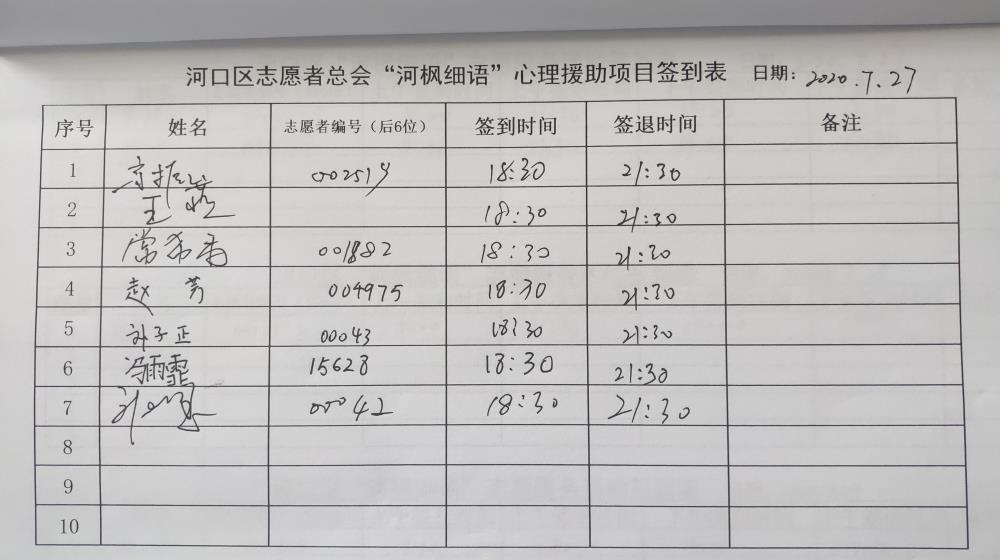 河口区志愿者总会“河枫细语”心理援助项目签到表 日期：2020.7.27
序号 姓名 志愿者编号（后6位） 签到时间 签退时间 备注
1 002519 18:30 21:30
2 王 18:30 21:30
3 常希香 001882 18:30 21:30
4 赵芳 004975 18:30 21:30
5 孙子正 00043 18:30 21:30
6 冯雨霏 15628 18:30 21:30
7 00042 18:30 21:30
8
9
10